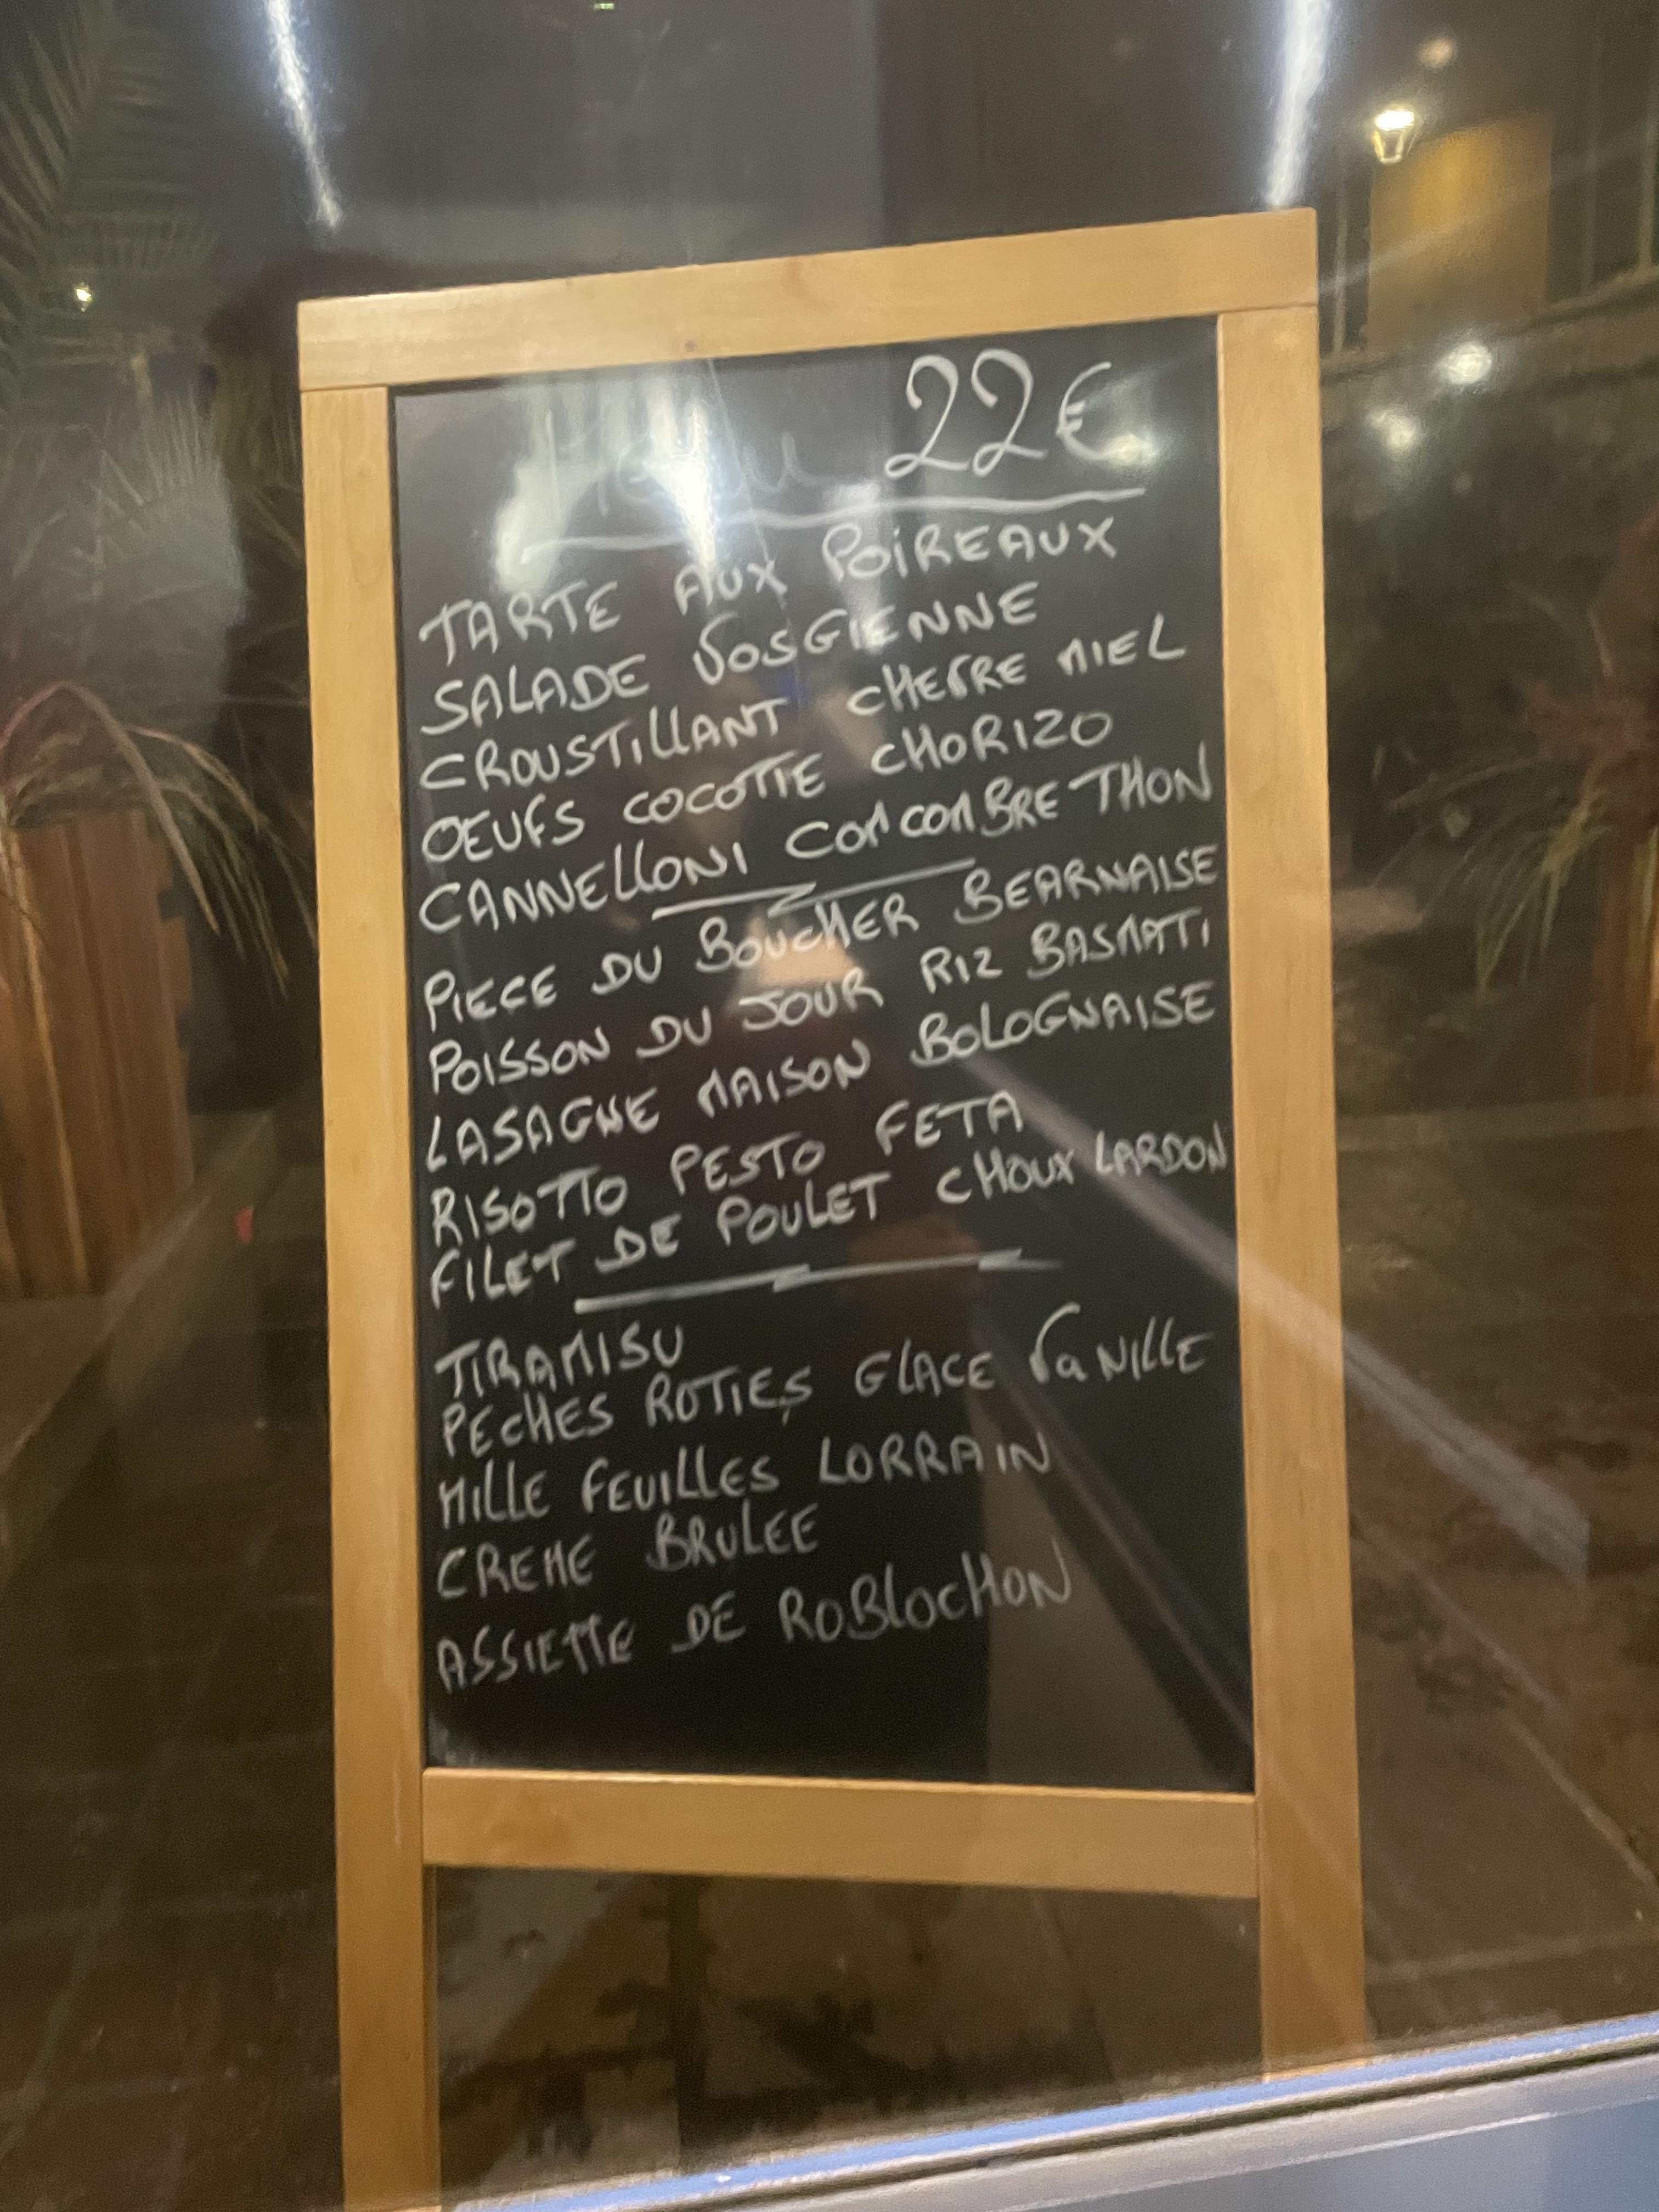 Menu 22€
TARTE AUX POiREAUX
SALADE VOSGIENNE
CROUSTiLLANT CHEVRE MIEL
OEUFS COCOTTE CHORIZO
CANNELLONI CONCOMBRE THON
PIECE DU BOUCHER BEARNAISE
POISSON DU JOUR RIZ BASMATI
LASAGNE MAISON BOLOGNAISE
RISOTTO PESTO FETA
FILET DE POULET CHOUX LARDON
TIRAMISU
PECHES ROTIES GLACE VaNILLE
MILLE FEUILLES LORRAIN
CREME BRULEE
ASSIETTE DE ROBLOCHON